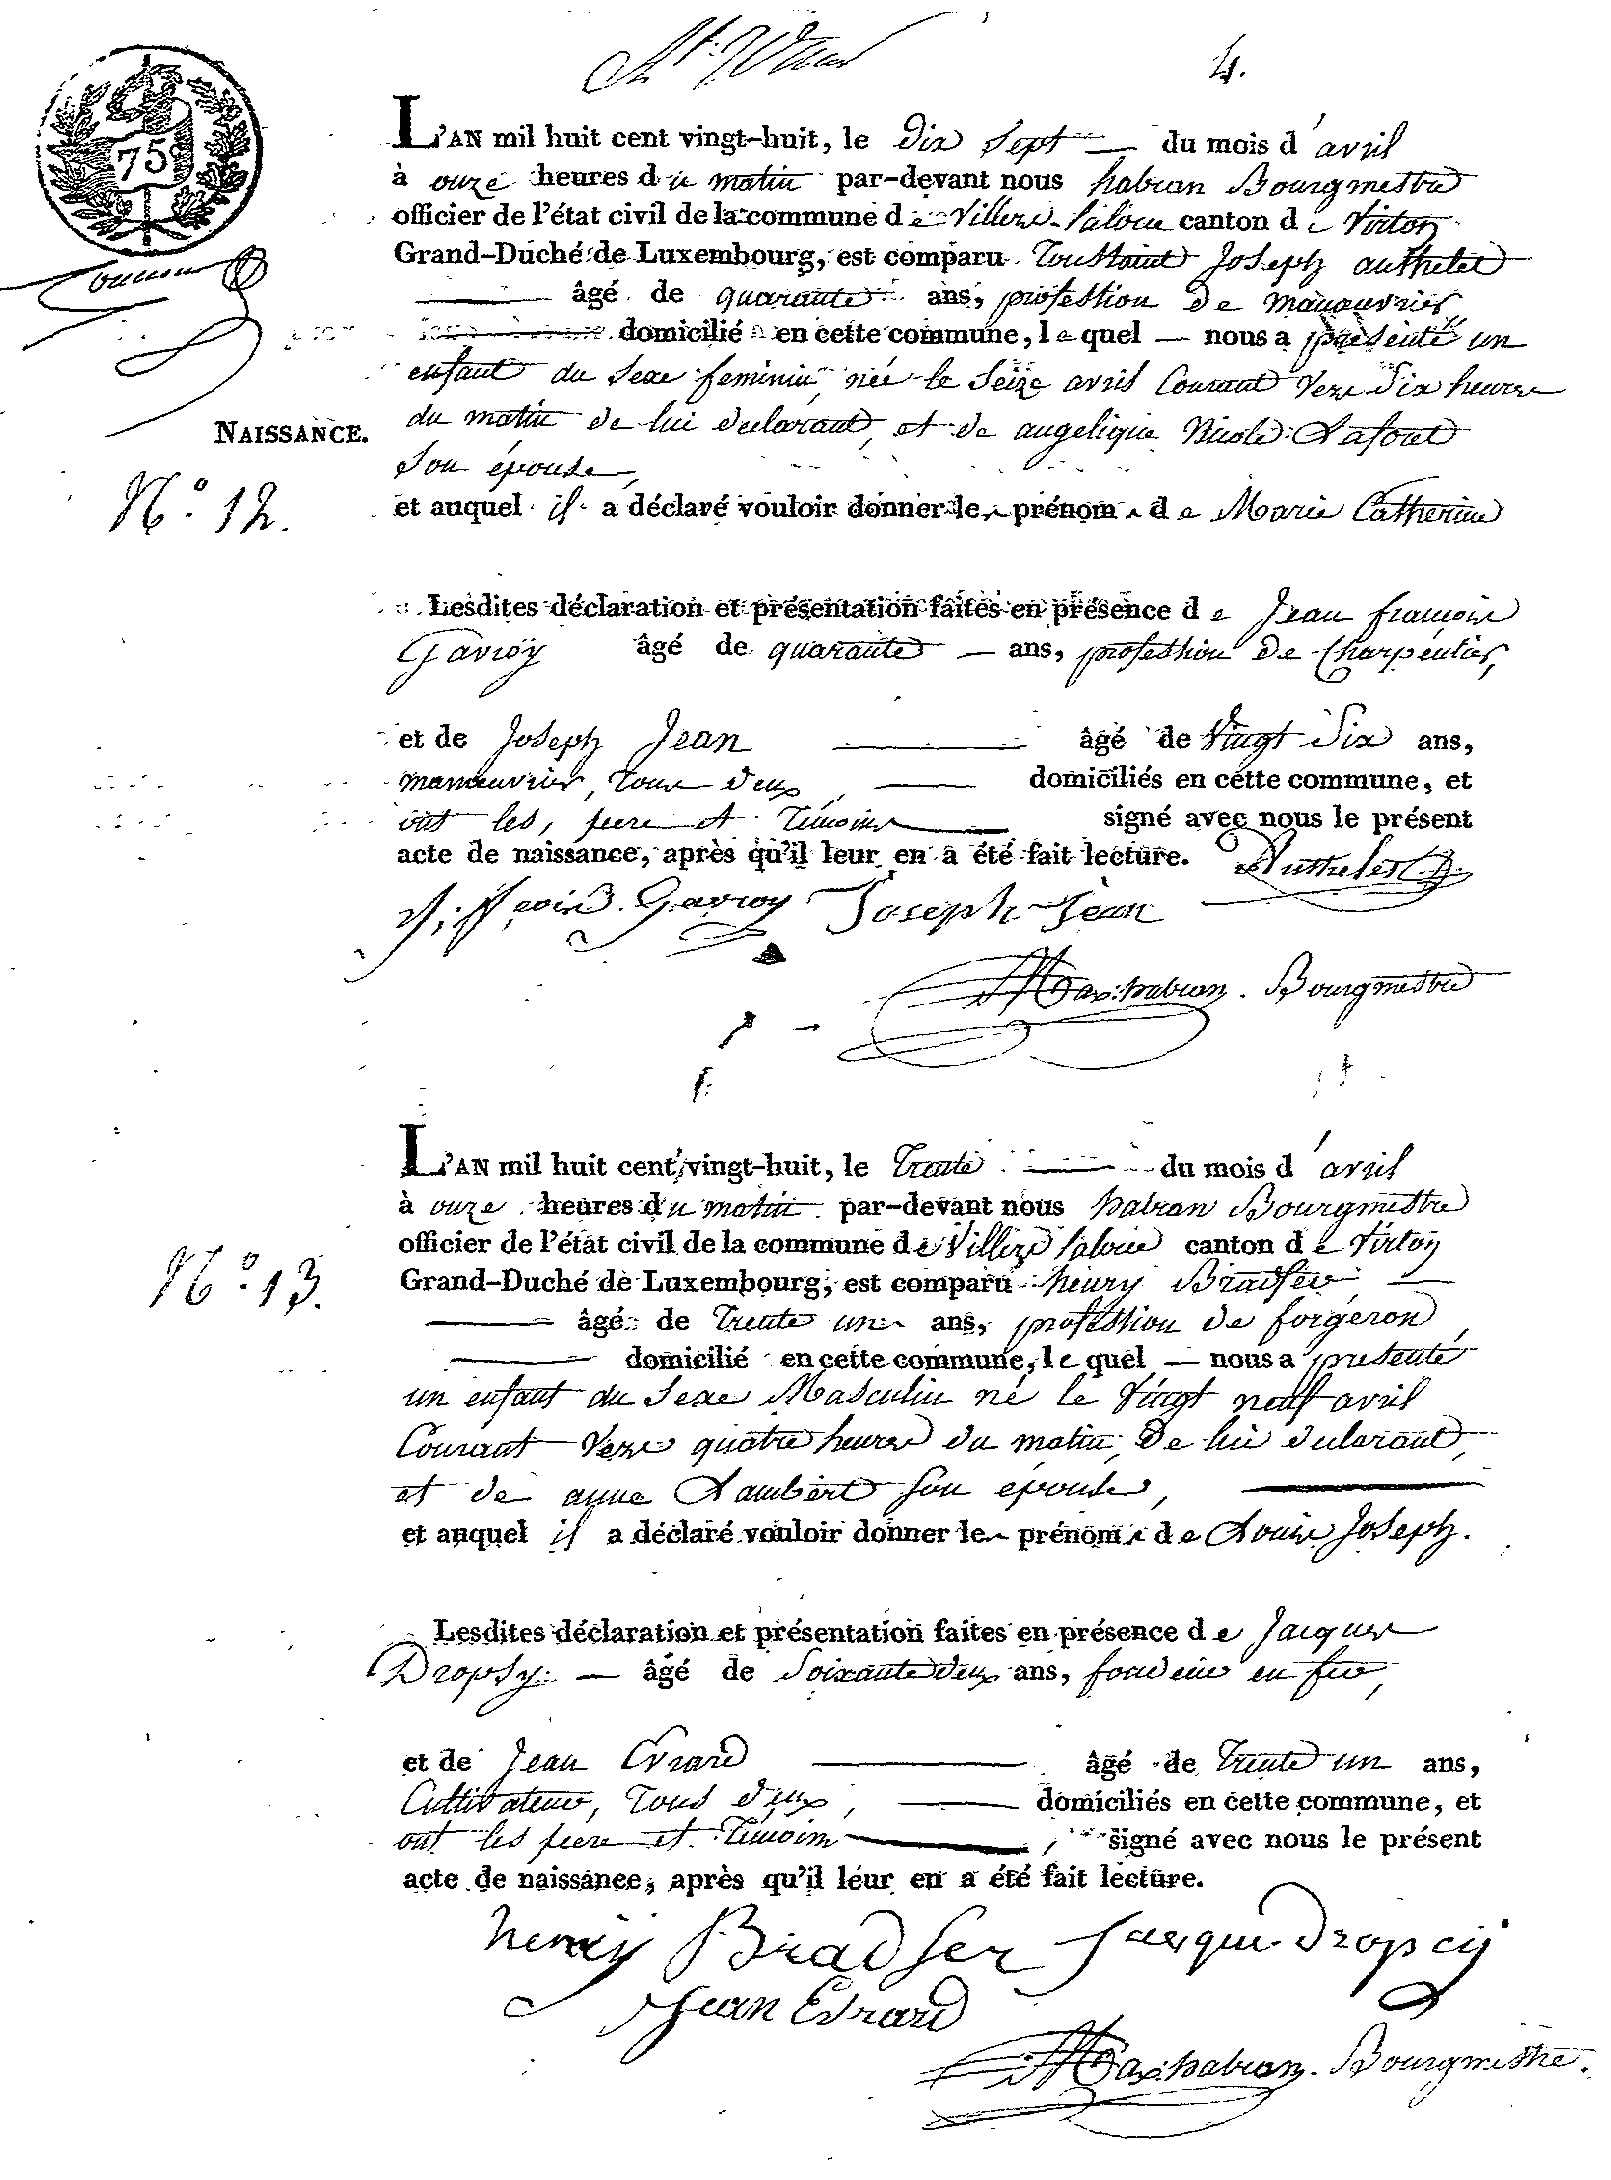 4.
75
L'AN mil huit cent vingt-huit, le Dix Sept — du mois d'avril
à onze heures du matin par-devant nous habran Bourgmestre
officier de l'état civil de la commune de Villers-laloue canton de Virton
Grand-Duché de Luxembourg, est comparu Toussaint Joseph authelet
— âgé de quarante ans, profession de manœuvrier,
domicilié en cette commune, lequel — nous a présenté un
enfant du Sexe feminin, née le Seize avril Courant vers Dix heures
NAISSANCE.
du matin de lui declarant, et de angelique Nicole Lafont
Son épouse,
N.° 12.
et auquel il a déclaré vouloir donner les prénoms de Marie Catherine
Lesdites déclaration et présentation faites en présence de Jean françois
Gavroy âgé de quarante — ans, profession de Charpentier,
et de Joseph Jean — âgé de Vingt Six ans,
manœuvrier, Tous deux, — domiciliés en cette commune, et
ont les, pere et Témoins — signé avec nous le présent
acte de naissance, après qu'il leur en a été fait lecture. Authelet
J: fçois. Gavroy Joseph Jean
Max: habran. Bourgmestre
L'AN mil huit cent vingt-huit, le Trente — du mois d'avril
à onze heures du matin par-devant nous habran Bourgmestre
officier de l'état civil de la commune de Villers laloue canton de Virton
N.° 13.
Grand-Duché de Luxembourg, est comparu henry Bradfer —
— âgé de Trente un ans, profession de forgeron,
— domicilié en cette commune, lequel — nous a présenté
un enfant du Sexe Masculin né le Vingt neuf avril
Courant vers quatre heures du matin, De lui declarant,
et de anne Lambert Son épouse, —
et auquel il a déclaré vouloir donner les prénoms de Louis Joseph.
Lesdites déclaration et présentation faites en présence de Jacques
Dropsy — âgé de Soixante deux ans, fondeur en fer,
et de Jean Evrard — âgé de Trente un ans,
Cultivateur, Tous deux, — domiciliés en cette commune, et
ont les pere et Témoins —, signé avec nous le présent
acte de naissance, après qu'il leur en a été fait lecture.
henry Bradfer Jacque Dropcy
Jean Evrard
Max: habran. Bourgmestre.